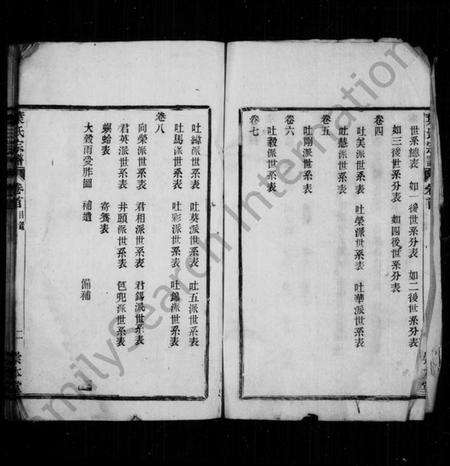 世系總表 如一後世系分表 如二後世系分表
如三後世系分表 如四後世系分表
卷四
吐美派世系表 吐榮派世系表 吐華派世系表
吐慧派世系表
卷五
吐剛派世系表
卷六
吐毅派世系表
卷七
吐緯派世系表 吐葵派世系表 吐五派世系表
吐馬派世系表 吐彩派世系表 吐錦派世系表
卷八
向榮派世系表 君相派世系表 君錫派世系表
君英派世系表 井頤派世系表 邑兜派世系表
螟蛉表 寄養表
補遺 備補
葉氏宗譜 卷首 目錄
FamilySearch International